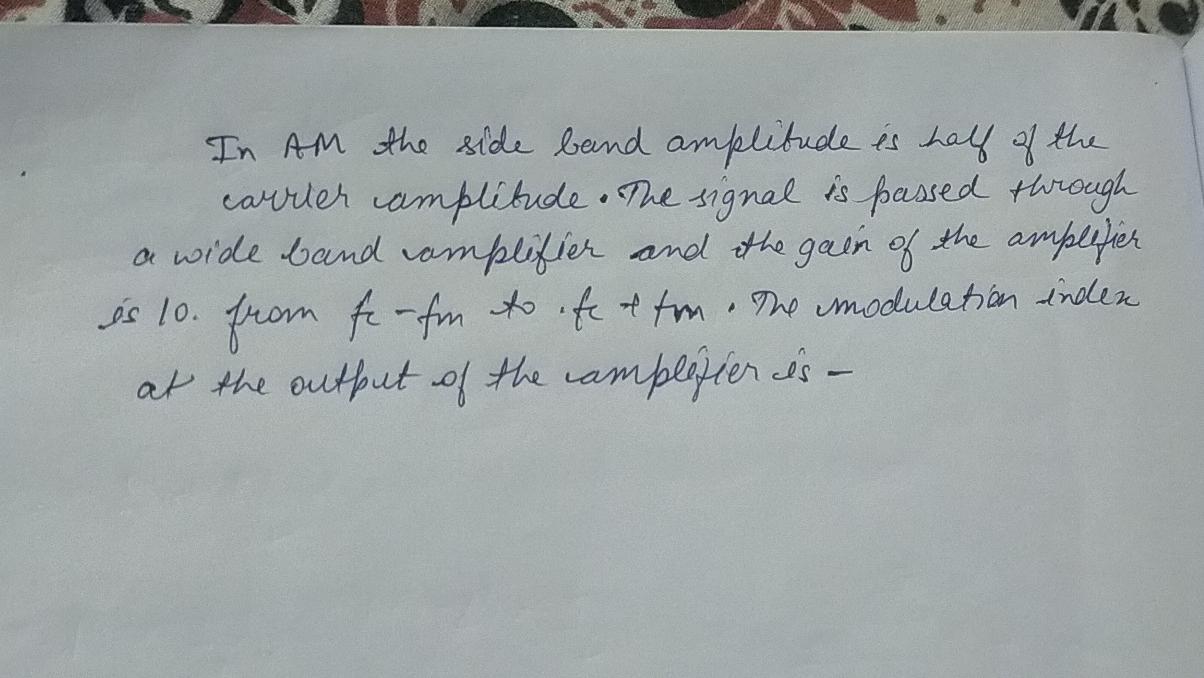 In AM the side band amplitude is half of the
carrier amplitude. The signal is passed through
a wide band amplifier and the gain of the amplifier
is 10. from fc - fm to .fc + fm. The modulation index
at the output of the amplifier is -